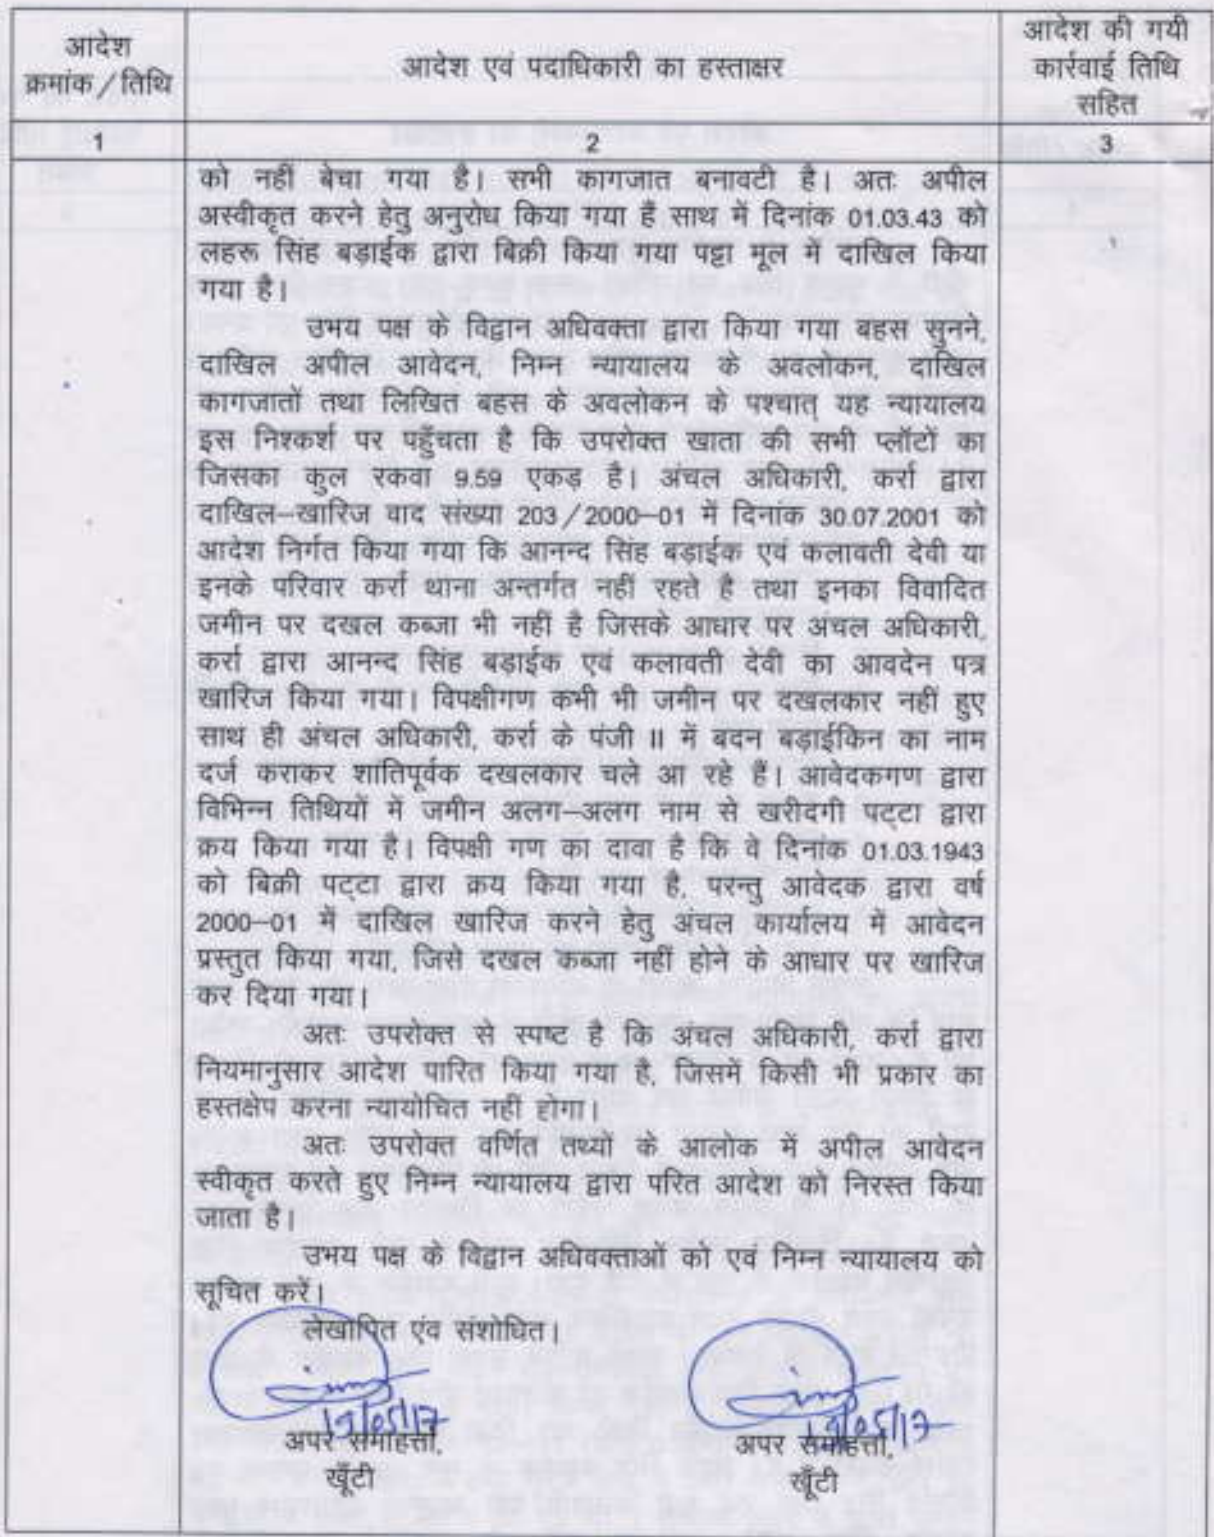 आदेश
क्रमांक / तिथि
आदेश एवं पदाधिकारी का हस्ताक्षर
आदेश की गयी
कार्रवाई तिथि
सहित
1
2
3
को नहीं बेचा गया है। सभी कागजात बनावटी है। अतः अपील
अस्वीकृत करने हेतु अनुरोध किया गया हैं साथ में दिनांक 01.03.43 को
लहरू सिंह बड़ाईक द्वारा बिक्री किया गया पट्टा मूल में दाखिल किया
गया है।
उभय पक्ष के विद्वान अधिवक्ता द्वारा किया गया बहस सुनने,
दाखिल अपील आवेदन, निम्न न्यायालय के अवलोकन, दाखिल
कागजातों तथा लिखित बहस के अवलोकन के पश्चात् यह न्यायालय
इस निश्कर्श पर पहुँचता है कि उपरोक्त खाता की सभी प्लॉटों का
जिसका कुल रकवा 9.59 एकड़ है। अंचल अधिकारी, कर्रा द्वारा
दाखिल–खारिज वाद संख्या 203 / 2000–01 में दिनांक 30.07.2001 को
आदेश निर्गत किया गया कि आनन्द सिंह बड़ाईक एवं कलावती देवी या
इनके परिवार कर्रा थाना अन्तर्गत नहीं रहते है तथा इनका विवादित
जमीन पर दखल कब्जा भी नहीं है जिसके आधार पर अंचल अधिकारी,
कर्रा द्वारा आनन्द सिंह बड़ाईक एवं कलावती देवी का आवदेन पत्र
खारिज किया गया। विपक्षीगण कभी भी जमीन पर दखलकार नहीं हुए
साथ ही अंचल अधिकारी, कर्रा के पंजी II में बदन बड़ाईकिन का नाम
दर्ज कराकर शांतिपूर्वक दखलकार चले आ रहे हैं। आवेदकगण द्वारा
विभिन्न तिथियों में जमीन अलग–अलग नाम से खरीदगी पट्टा द्वारा
क्रय किया गया है। विपक्षी गण का दावा है कि वे दिनांक 01.03.1943
को बिक्री पट्टा द्वारा क्रय किया गया है, परन्तु आवेदक द्वारा वर्ष
2000–01 में दाखिल खारिज करने हेतु अंचल कार्यालय में आवेदन
प्रस्तुत किया गया, जिसे दखल कब्जा नहीं होने के आधार पर खारिज
कर दिया गया।
अतः उपरोक्त से स्पष्ट है कि अंचल अधिकारी, कर्रा द्वारा
नियमानुसार आदेश पारित किया गया है, जिसमें किसी भी प्रकार का
हस्तक्षेप करना न्यायोचित नहीं होगा।
अतः उपरोक्त वर्णित तथ्यों के आलोक में अपील आवेदन
स्वीकृत करते हुए निम्न न्यायालय द्वारा परित आदेश को निरस्त किया
जाता है।
उभय पक्ष के विद्वान अधिवक्ताओं को एवं निम्न न्यायालय को
सूचित करें।
लेखापित एंव संशोधित।
19/05/17
19/05/17
अपर समाहर्त्ता,
अपर समाहर्त्ता,
खूँटी
खूँटी